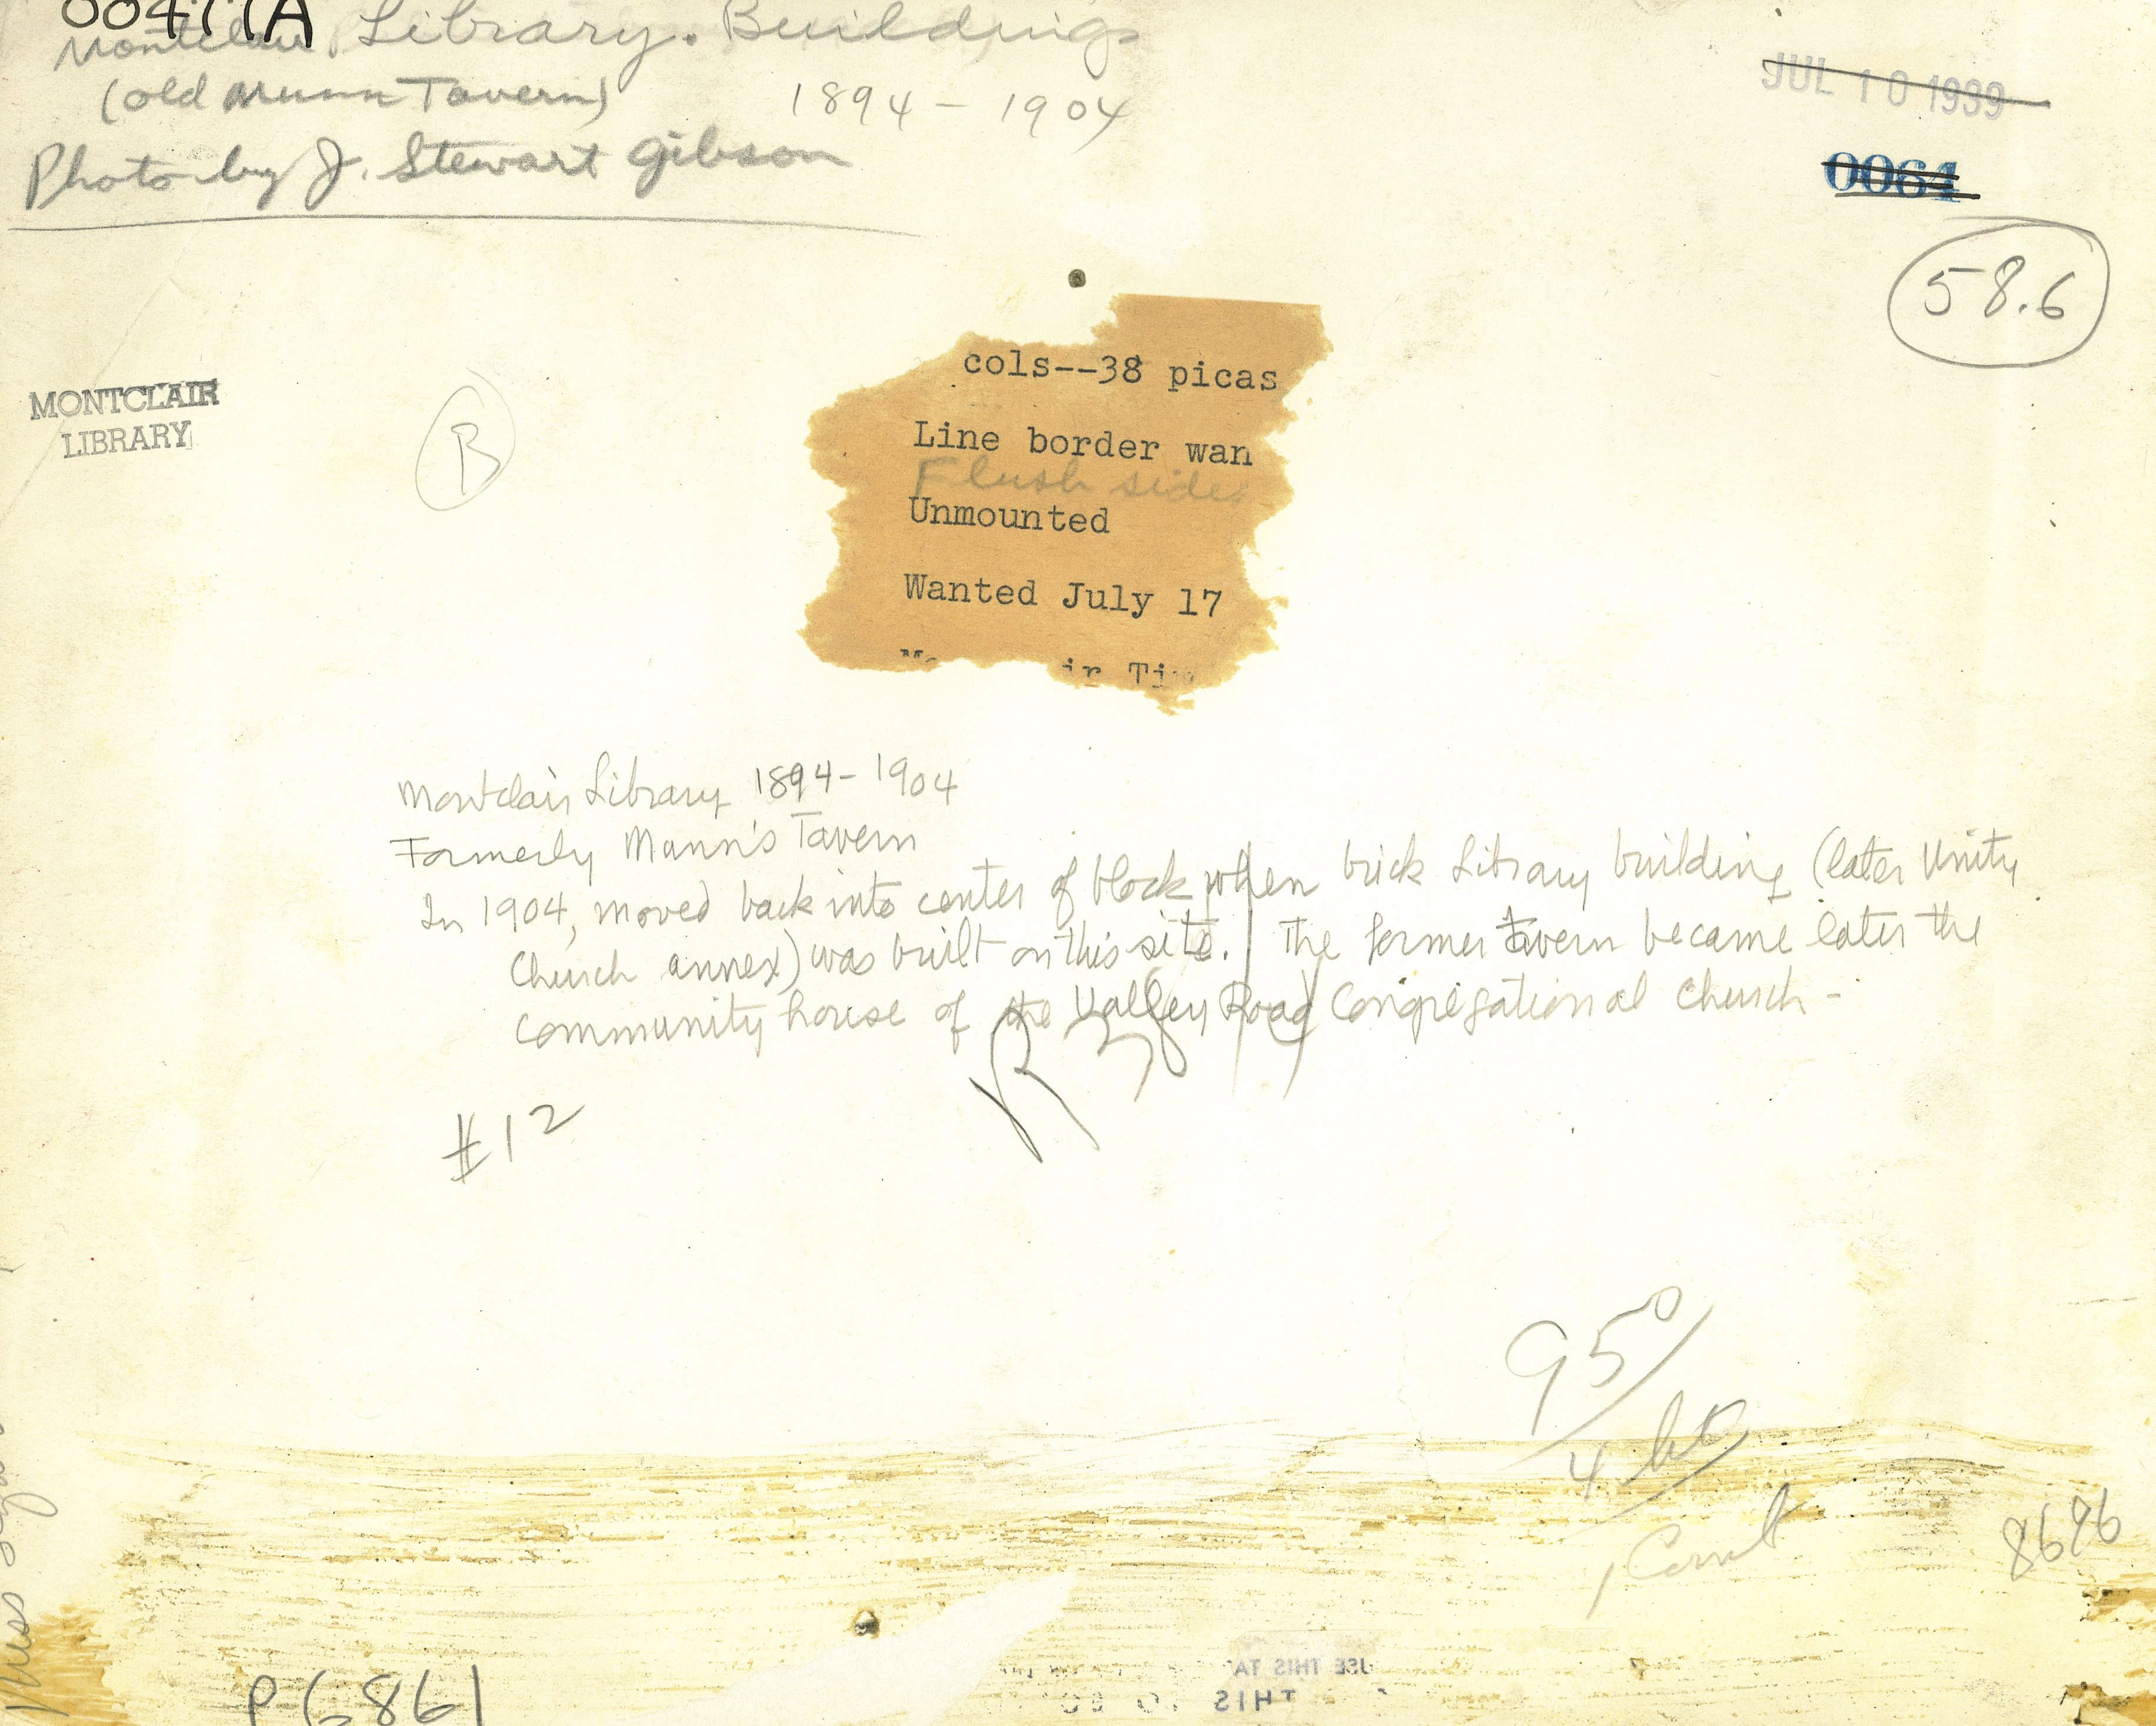 00477A
Montclair Library. Buildings
(old Munn Tavern) 1894 - 1904
Photo by J. Stewart Gibson
JUL 10 1939
0064
58.6
MONTCLAIR
LIBRARY
B
cols--38 picas
Line border wan
Flush sides
Unmounted
Wanted July 17
ir Ti
Montclair Library 1894-1904
Formerly Munn's Tavern
In 1904, moved back into center of block when brick Library building (later Unity
Church annex) was built on this site. The former tavern became later the
community house of the Valley Road Congregational Church -
#12
950
4
8696
Miss
P6861
USE THIS TA
THIS